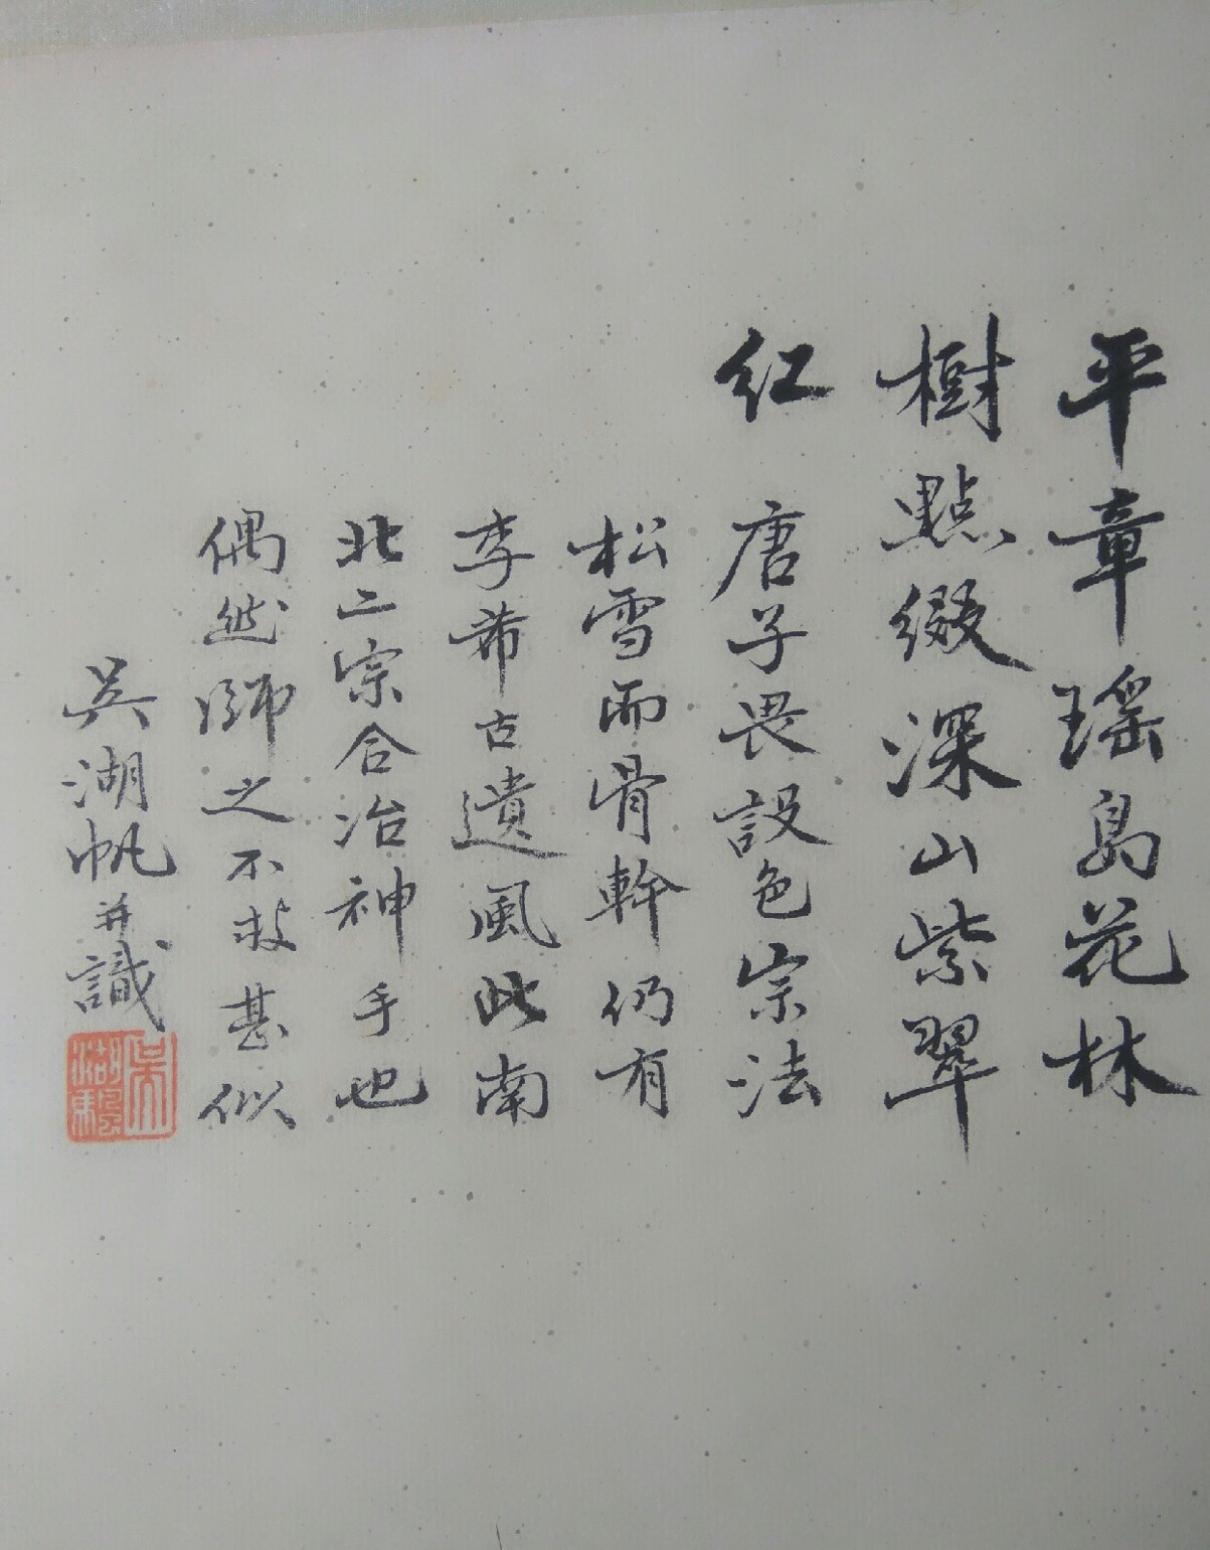 平章瑶島花林
樹點綴深山紫翠
红 唐子畏設色宗法
松雪而骨幹仍有
李希古遺風此南
北二宗合冶神手也
偶然師之不求甚似
吳湖帆并識
吳湖颿